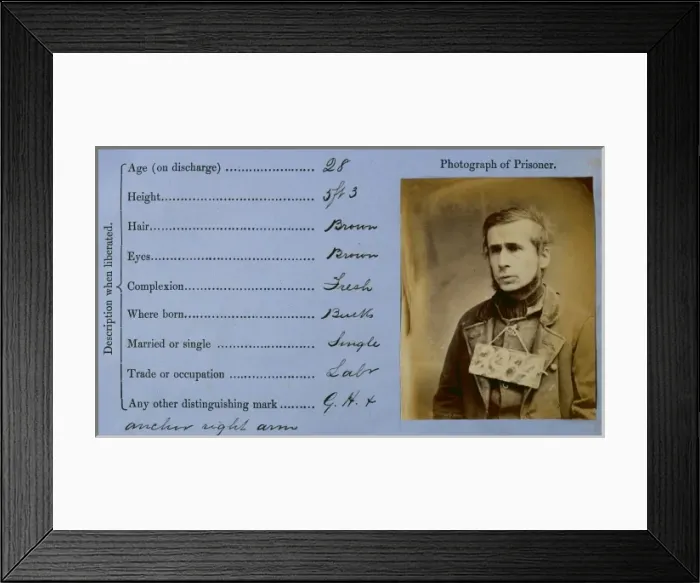 Description when liberated.
Age (on discharge) ........................ 28
Height........................................... 5ft 3
Hair............................................... Brown
Eyes............................................... Brown
Complexion.................................... Fresh
Where born.................................... Bucks
Married or single .......................... Single
Trade or occupation ...................... Labr
Any other distinguishing mark ......... G. H. +
anchor right arm
Photograph of Prisoner.